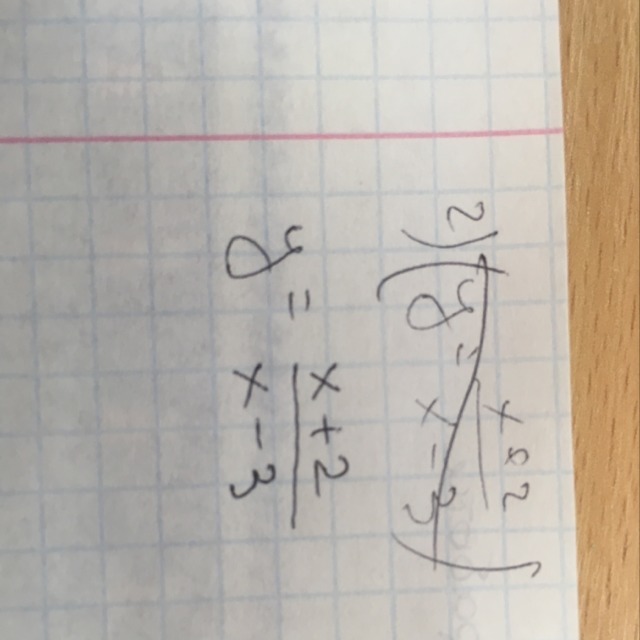 2) (y = x+2 / x-3)
y = x+2 / x-3